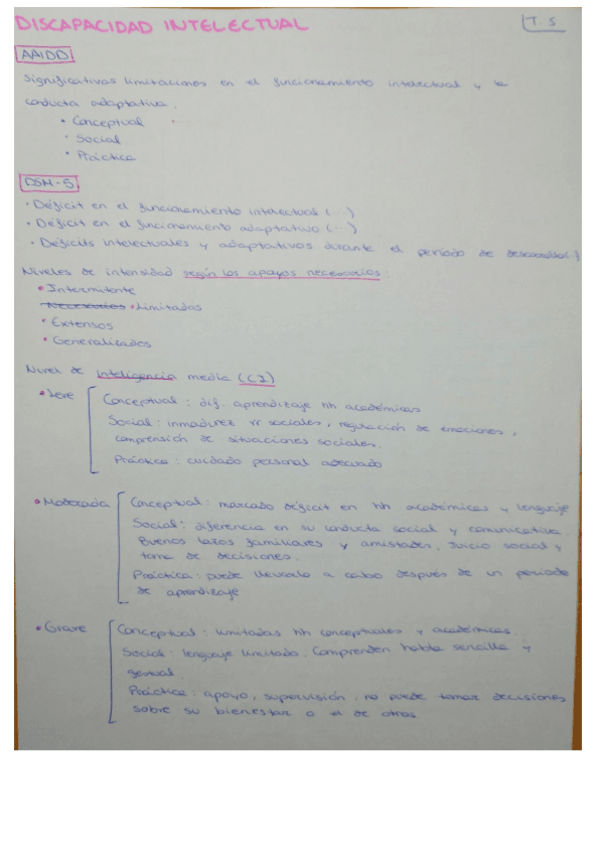 DISCAPACIDAD INTELECTUAL
T. 5
AAIDD
Significativas limitaciones en el funcionamiento intelectual y la
conducta adaptativa.
• Conceptual
• Social
• Práctica
DSM-5
• Déficit en el funcionamiento intelectual (...)
• Déficit en el funcionamiento adaptativo (...)
• Déficits intelectuales y adaptativos durante el período de desarrollo(.)
Niveles de intensidad según los apoyos necesarios:
• Intermitente
Necesarios • Limitados
• Extensos
• Generalizados
Nivel de inteligencia media (CI)
• Leve
Conceptual: dif. aprendizaje hh académicas
Social: inmadurez rr sociales, regulación de emociones,
comprensión de situaciones sociales.
Práctica: cuidado personal adecuado
• Moderada
Conceptual: marcado déficit en hh académicas y lenguaje
Social: diferencia en su conducta social y comunicativa.
Buenos lazos familiares y amistades. Juicio social y
toma de decisiones.
Práctica: puede llevarlo a cabo después de un período
de aprendizaje
• Grave
Conceptual: limitadas hh conceptuales y académicas.
Social: lenguaje limitado. Comprenden habla sencilla y
gestual.
Práctica: apoyo, supervisión, no puede tomar decisiones
sobre su bienestar o el de otros